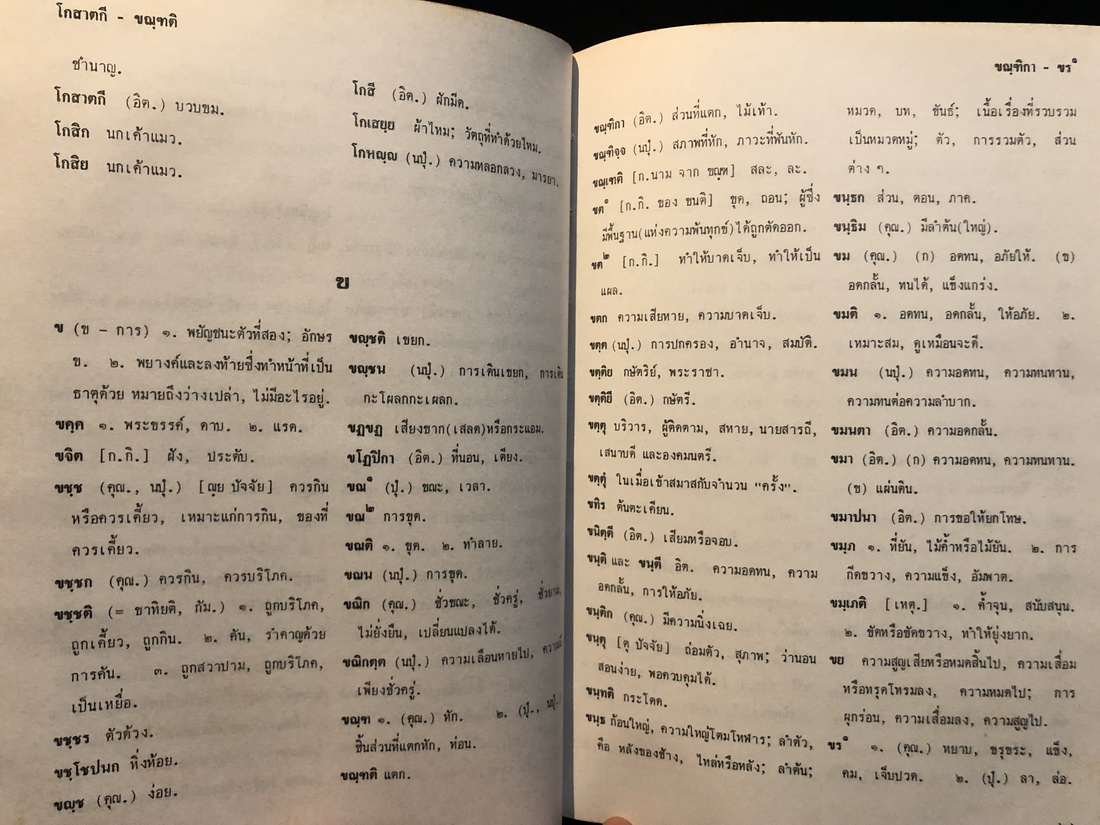 โกสาตกี - ขณฺฑติ
ชำนาญ.
โกสาตกี (อิต.) บวบขม.
โกสิก นกเค้าแมว.
โกสิย นกเค้าแมว.
โกสี (อิต.) ฝักมีด.
โกเสยฺย ผ้าไหม; วัตถุที่ทำด้วยไหม.
โกหญฺญ (นปุํ.) ความหลอกลวง, มารยา.
ข
ข (ข - การ) ๑. พยัญชนะตัวที่สอง; อักษร
ข. ๒. พยางค์และลงท้ายซึ่งทำหน้าที่เป็น
ธาตุด้วย หมายถึงว่างเปล่า, ไม่มีอะไรอยู่.
ขคฺค ๑. พระขรรค์, ดาบ. ๒. แรด.
ขจิต [ก.กิ.] ฝัง, ประดับ.
ขชฺช (คุณ., นปุํ.) [ณฺย ปัจจัย] ควรกิน
หรือควรเคี้ยว, เหมาะแก่การกิน, ของที่
ควรเคี้ยว.
ขชฺชก (คุณ.) ควรกิน, ควรบริโภค.
ขชฺชติ (= ขาทิยติ, กัม.) ๑. ถูกบริโภค,
ถูกเคี้ยว, ถูกกิน. ๒. คัน, รำคาญด้วย
การคัน. ๓. ถูกสวาปาม, ถูกบริโภค,
เป็นเหยื่อ.
ขชฺชร ตัวด้วง.
ขชฺโชปนก หิ่งห้อย.
ขญฺช (คุณ.) ง่อย.
ขญฺชติ เขยก.
ขญฺชน (นปุํ.) การเดินเขยก, การเดิน
กะโผลกกะเผลก.
ขฏขฏ เสียงขาก(เสลด)หรือกระแอม.
ขโฏปิกา (อิต.) ที่นอน, เตียง.
ขณ๑ (ปุํ.) ขณะ, เวลา.
ขณ๒ การขุด.
ขณติ ๑. ขุด. ๒. ทำลาย.
ขณน (นปุํ.) การขุด.
ขณิก (คุณ.) ชั่วขณะ, ชั่วครู่, ชั่วยาม,
ไม่ยั่งยืน, เปลี่ยนแปลงได้.
ขณิกตฺต (นปุํ.) ความเลือนหายไป,
เพียงชั่วครู่.
ขณฺฑ ๑. (คุณ.) หัก. ๒. (ปุํ., นปุํ.)
ชิ้นส่วนที่แตกหัก, ท่อน.
ขณฺฑติ แตก.
ขณฺฑิกา - ขร๑
ขณฺฑิกา (อิต.) ส่วนที่แตก, ไม้เท้า.
ขณฺฑิจฺจ (นปุํ.) สภาพที่หัก, ภาวะที่ฟันหัก.
ขณฺเฑติ [ก.นาม จาก ขณฺฑ] สละ, ละ.
ขต๑ [ก.กิ. ของ ขนติ] ขุด, ถอน; ผู้ซึ่ง
มีพื้นฐาน(แห่งความพ้นทุกข์)ได้ถูกตัดออก.
ขต๒ [ก.กิ.] ทำให้บาดเจ็บ, ทำให้เป็น
แผล.
ขตก ความเสียหาย, ความบาดเจ็บ.
ขตฺต (นปุํ.) การปกครอง, อำนาจ, สมบัติ.
ขตฺติย กษัตริย์, พระราชา.
ขตฺติยี (อิต.) กษัตรี.
ขตฺตุ บริวาร, ผู้ติดตาม, สหาย, นายสารถี,
เสนาบดี และองคมนตรี.
ขตฺตุํ ในเมื่อเข้าสมาสกับจำนวน "ครั้ง".
ขทิร ต้นตะเคียน.
ขนิตฺตี (อิต.) เสียมหรือจอบ.
ขนฺติ และ ขนฺตี อิต. ความอดทน, ความ
อดกลั้น, การให้อภัย.
ขนฺติก (คุณ.) มีความนิ่งเฉย.
ขนฺตุ [ตุ ปัจจัย] ถ่อมตัว, สุภาพ; ว่านอน
สอนง่าย, พอควบคุมได้.
ขนฺทติ กระโดด.
ขนฺธ ก้อนใหญ่, ความใหญ่โตมโหฬาร; ลำตัว,
คือ หลังของช้าง, ไหล่หรือหลัง; ลำต้น;
หมวด, บท, ขันธ์; เนื้อเรื่องที่รวบรวม
เป็นหมวดหมู่; ตัว, การรวมตัว, ส่วน
ต่าง ๆ.
ขนฺธก ส่วน, ตอน, ภาค.
ขนฺธิม (คุณ.) มีลำต้น(ใหญ่).
ขม (คุณ.) (ก) อดทน, อภัยให้. (ข)
อดกลั้น, ทนได้, แข็งแกร่ง.
ขมติ ๑. อดทน, อดกลั้น, ให้อภัย. ๒.
เหมาะสม, ดูเหมือนจะดี.
ขมน (นปุํ.) ความอดทน, ความทนทาน,
ความทนต่อความลำบาก.
ขมนตา (อิต.) ความอดกลั้น.
ขมา (อิต.) (ก) ความอดทน, ความทนทาน.
(ข) แผ่นดิน.
ขมาปนา (อิต.) การขอให้ยกโทษ.
ขมฺภ ๑. ที่ยัน, ไม้ค้ำหรือไม้ยัน. ๒. การ
กีดขวาง, ความแข็ง, อัมพาต.
ขมฺเภติ [เหตุ.] ๑. ค้ำจุน, สนับสนุน.
๒. ขัดหรือขัดขวาง, ทำให้ยุ่งยาก.
ขย ความสูญเสียหรือหมดสิ้นไป, ความเสื่อม
หรือทรุดโทรมลง, ความหมดไป; การ
ผุกร่อน, ความเสื่อมลง, ความสูญไป.
ขร๑ ๑. (คุณ.) หยาบ, ขรุขระ, แข็ง,
คม, เจ็บปวด. ๒. (ปุํ.) ลา, ล่อ.